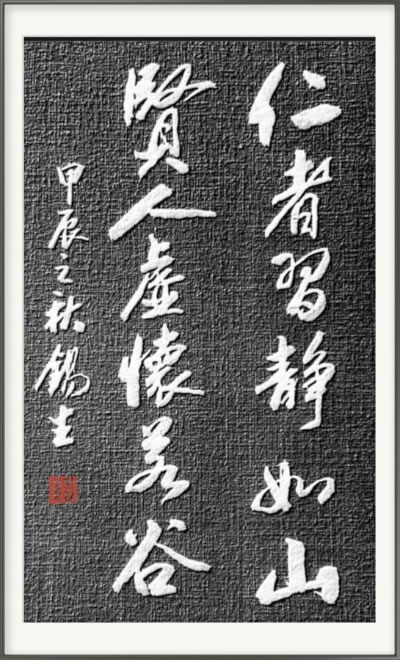 仁者習静如山
賢人虛懷若谷
甲辰之秋錫生